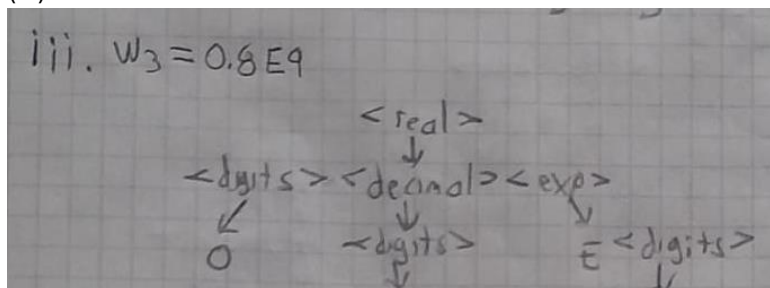 iii. W3 = 0.8E9
<real>
<digits> <decimal> <exp>
0 <digits> E <digits>